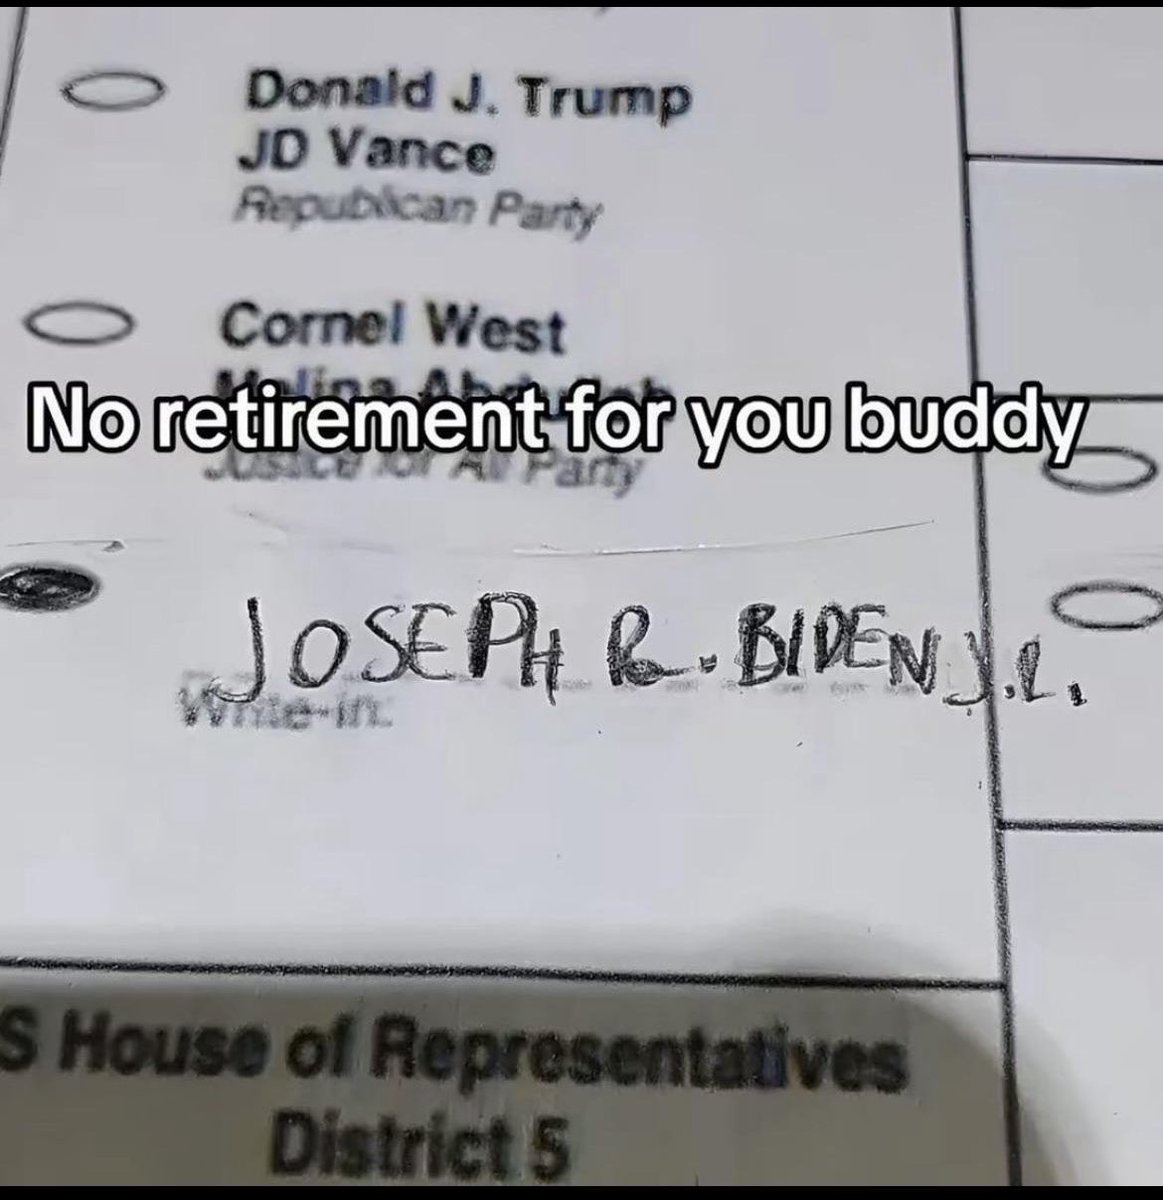 Donald J. Trump
JD Vance
Republican Party
Cornel West
No retirement for you buddy
Justice for All Party
JOSEPH R. BIDEN J.R.
Write-in:
S House of Representatives
District 5